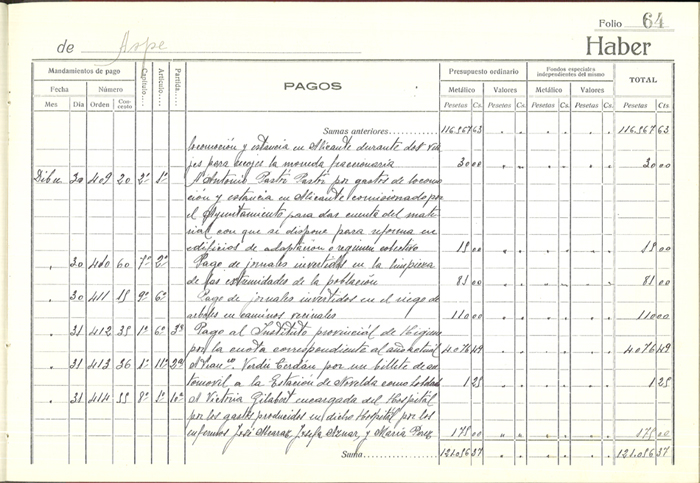 Folio 64
de Aspe
Haber
Mandamientos de pago
Capítulo
Artículo
Partida
PAGOS
Presupuesto ordinario
Fondos especiales independientes del mismo
TOTAL
Fecha
Número
Metálico
Valores
Metálico
Valores
Mes
Día
Orden
Concepto
Pesetas
Cs.
Pesetas
Cs.
Pesetas
Cs.
Pesetas
Cs.
Pesetas
Cts.
Sumas anteriores 116.967 63 116.967 63
locomoción y estancia en Alicante durante dos via-
jes para recojer la moneda fraccionaria 30 00 30 00
Dibre. 30 409 20 2º 1º A Antonio Pastor Pastor por gastos de locomo-
ción y estancia en Alicante comisionado por
el Ayuntamiento para dar cuenta del mate-
rial con que se dispone para reforma en
edificios de adaptación o regimen colectivo 15 00 15 00
" 30 410 60 7º 2º Pago de jornales invertidos en la limpieza
de las extremidades de la población 81 00 81 00
" 30 411 15 9º 6º Pago de jornales invertidos en el riego de
arboles en caminos vecinales 110 00 110 00
" 31 412 35 1º 6º 3ª Pago al Instituto provincial de Higiene
por la cuota correspondiente al año actual 4076 49 4076 49
" 31 413 36 1º 11º 2ª Verdú Cerdán por un billete de au-
tomovil a la Estación de Novelda 1 25 1 25
" 31 414 55 8º 1º 10ª A Victoria Gilabert encargada del Hospital
por los gastos producidos en dicho Hospital por los
enfermos José Alcaraz, Josefa Aznar, y Maria Perez 175 00 175 00
Suma 121.086 37 121.086 37